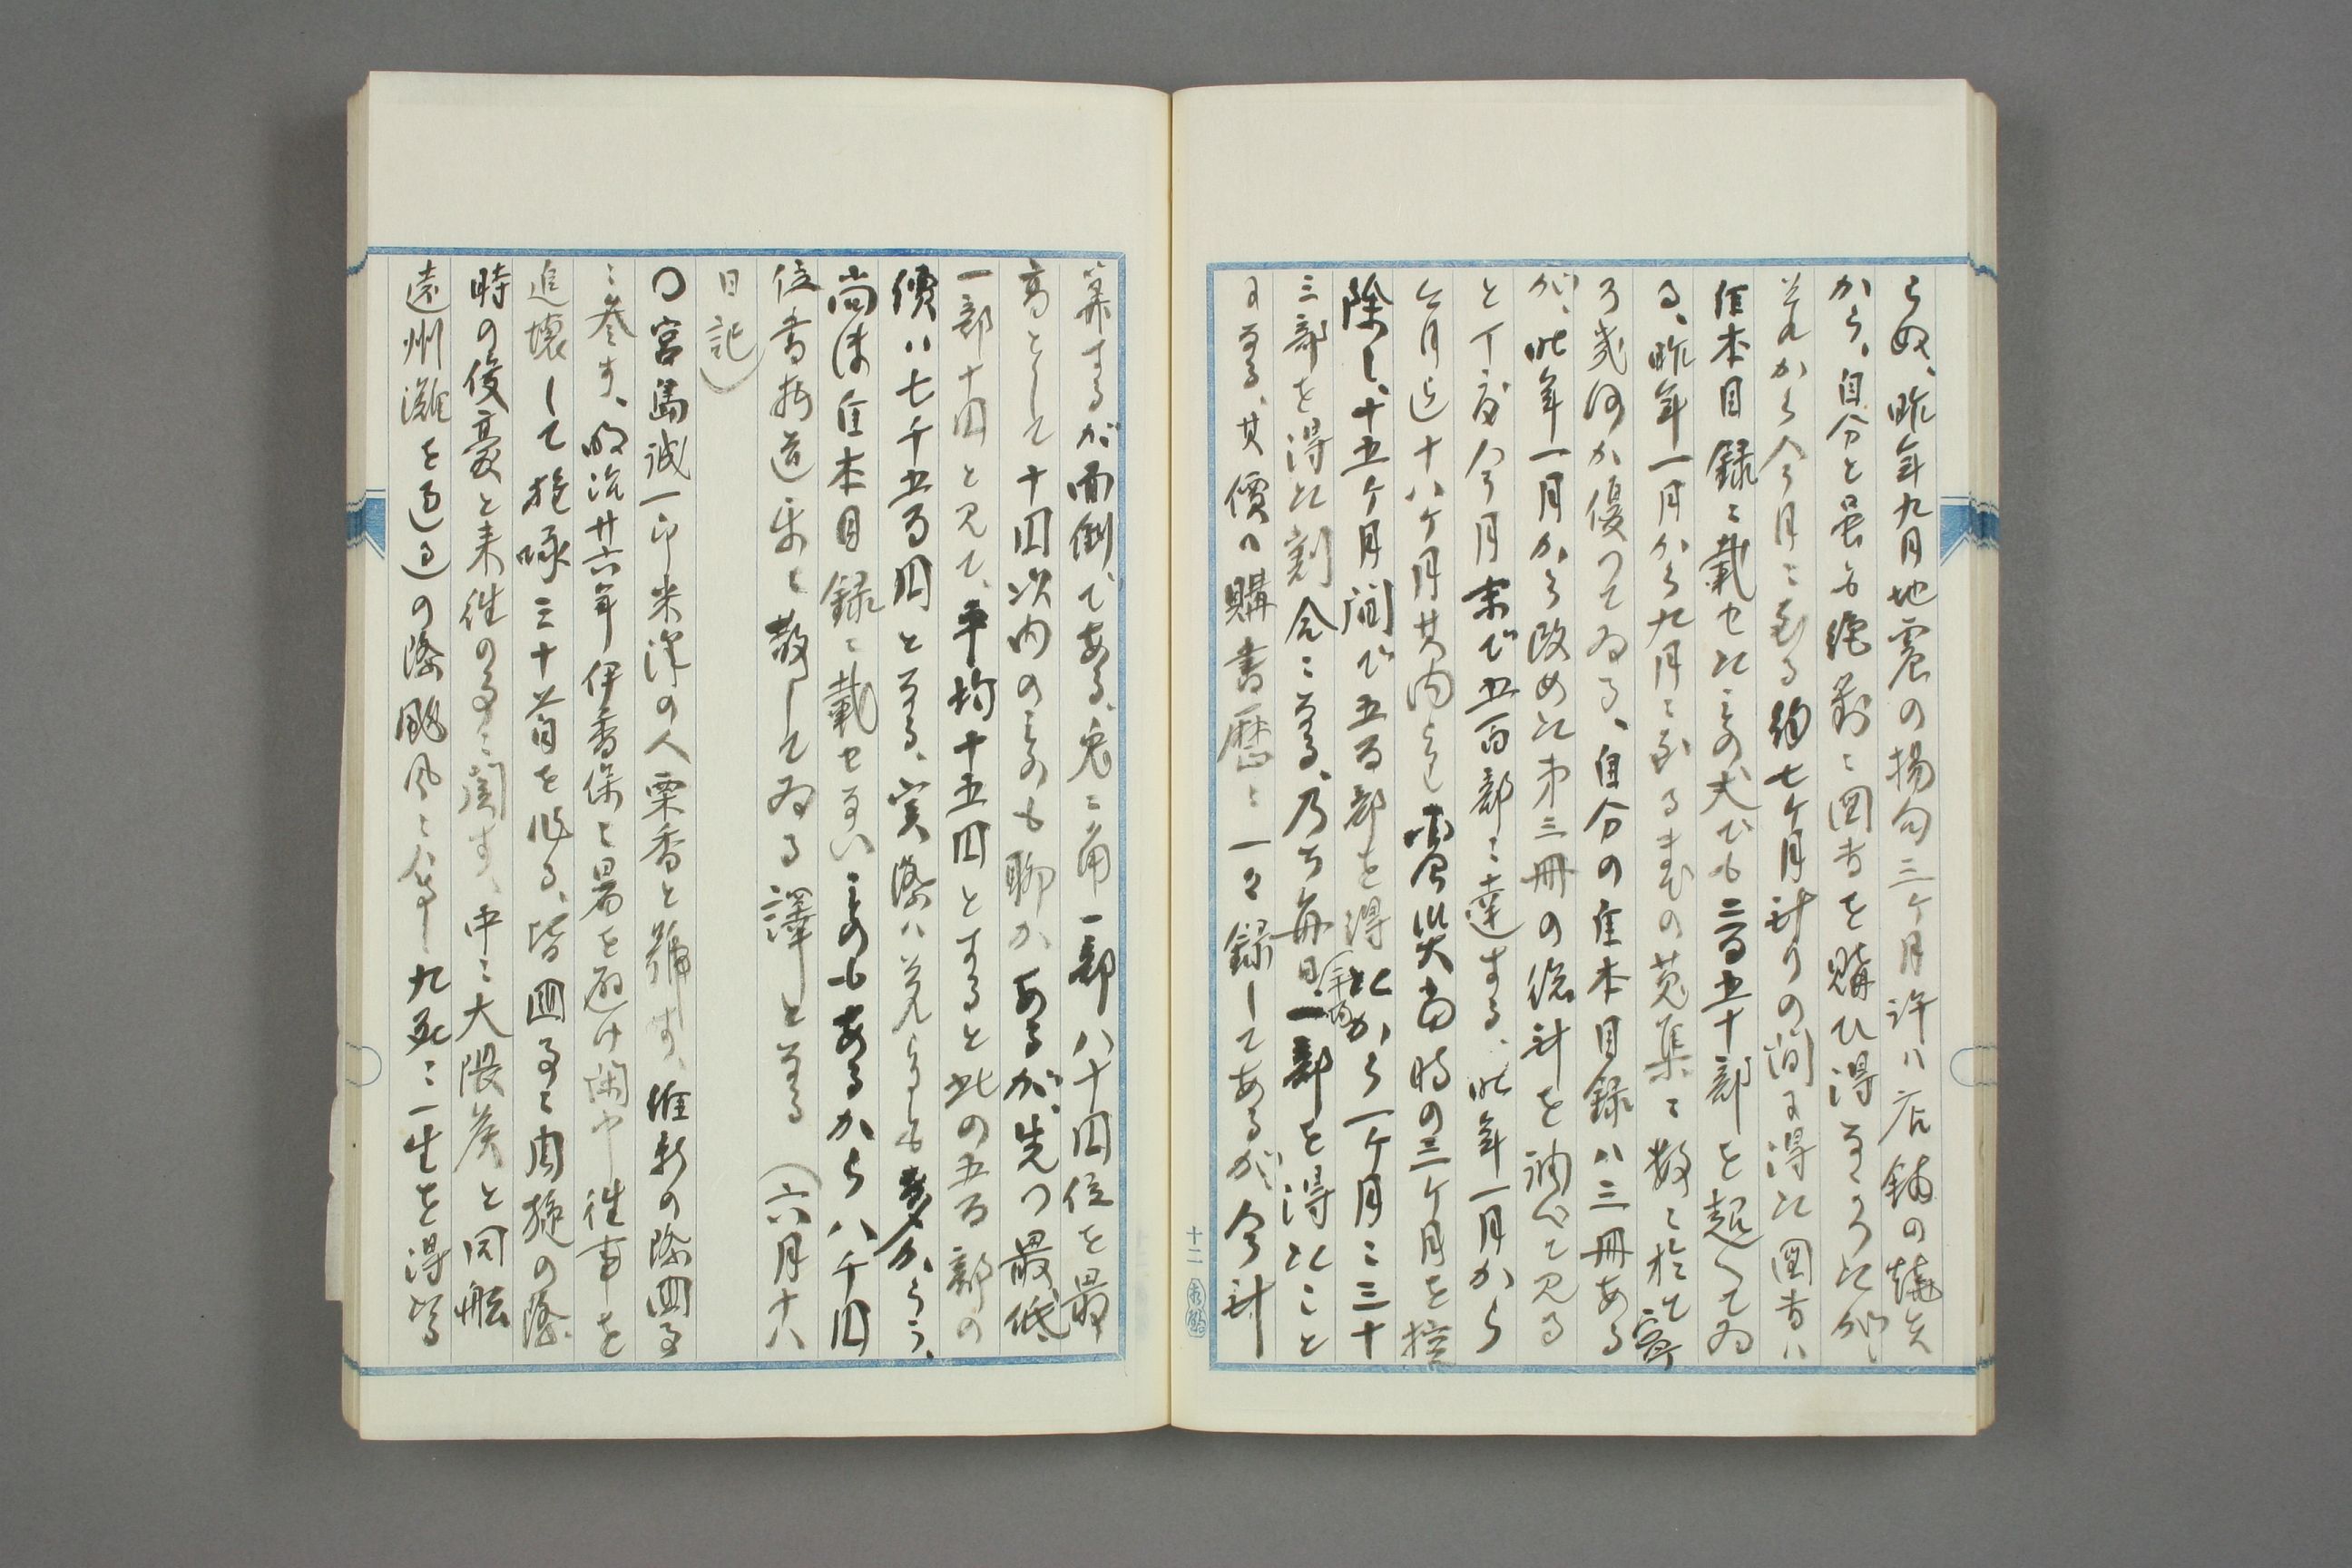 らぬ、昨年九月地震の揚句三ケ月許ハ店舗の焼失
から、自分と雖も絶對ニ図書を購ひ得なかつたが、
それから今月ニ至る約七ケ月計りの間に得た図書ハ
珍本目録ニ載せたもの丈でも二百五十部を超へてゐ
る、昨年一月から九月ニ至るまでの蒐集ニ数ニ於て寧
ろ幾何か優つてゐる、自分の珍本目録ハ三冊ある
が、昨年一月から改めた第三冊の総計を調べて見る
と丁度今月末で五百部ニ達する、昨年一月から
今月迄十八ケ月其内より震災当時の三ケ月を控
除し、十五ケ月間で五百部を得たから一ケ月ニ三十
三部を得た割合ニなる、乃ち毎日平均一部を得たこと
になる、其價ハ購書歴ニ一々録してあるが、今計
十二
算するが面倒である、兎ニ角一部八十円位を最
高として十円以内のものも聊かあるが、先つ最低
一部十円と見て、平均十五円とすると此の五百部の
價ハ七千五百円となる、実際ハ夫よりも多からう、
尚ほ珍本目録ニ載せないものもあるから八千円
位書物道楽ニ散してゐる譯となる（六月十八
日記）
〇宮島誠一郎米澤の人栗香と號す、維新の際国事
ニ参す、明治廿六年伊香保ニ暑を避け閑中往事を
追懐して絶句三十首を作る、皆国事ニ周旋の際
時の俊豪と来往の事ニ関す、中ニ大隈侯と同船
遠州灘を過る）の際颶風ニ会し九死ニ一生を得る